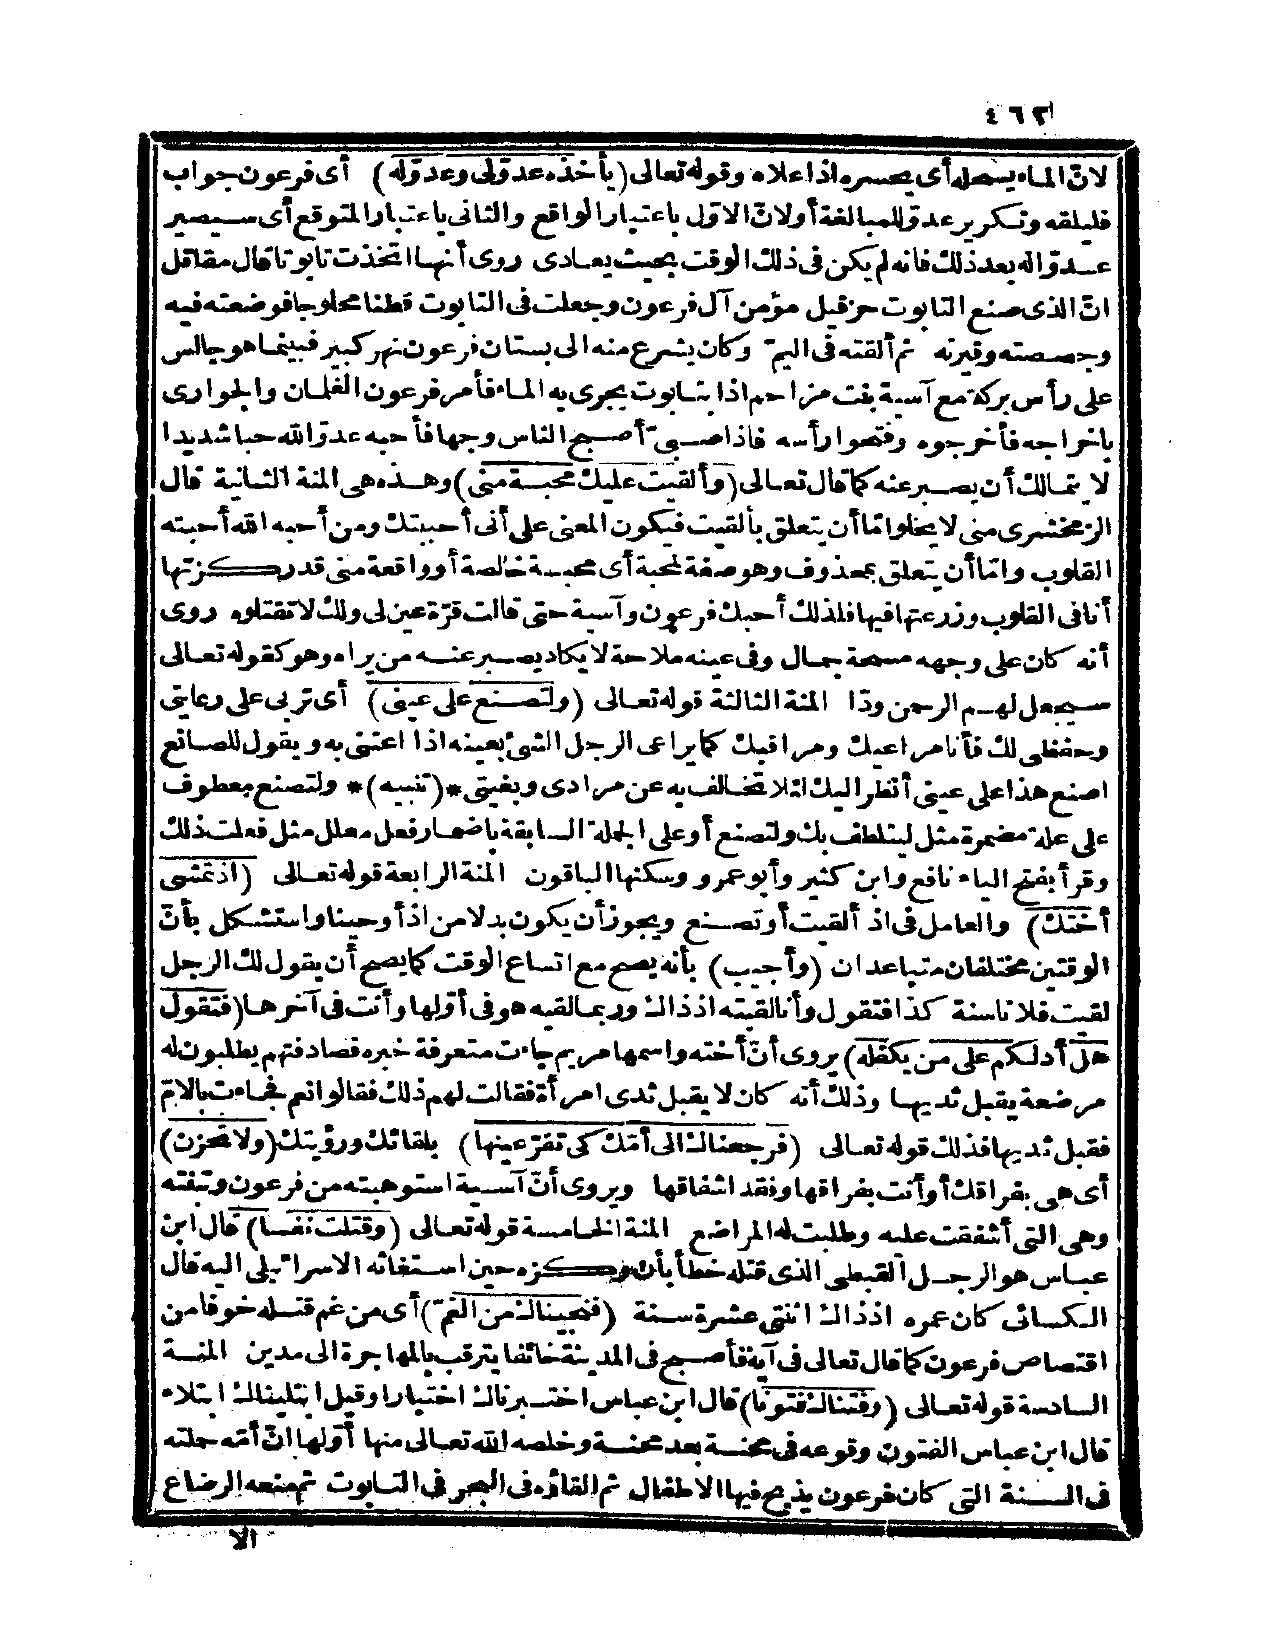 ٤٦٢
لانّ الماء يسحله أى يحسره اذا علاه وقوله تعالى (يأخذه عدوّلى وعدوّله) أى فرعون جواب
فليلقه وتكرير عدوّ للمبالغة أولانّ الاوّل باعتبار الواقع والثانى باعتبار المتوقع أى سيصير
عدوّاله بعد ذلك فانه لم يكن فى ذلك الوقت بحيث يعادى روى أنها اتخذت تابوتا قال مقاتل
انّ الذى صنع التابوت حزقيل مؤمن آل فرعون وجعلت فى التابوت قطنا محلوجا فوضعته فيه
وجصصته وقيرته ثم ألقته فى اليمّ وكان يشرع منه الى بستان فرعون نهر كبير فبينما هو جالس
على رأس بركة مع آسية بنت مزاحم اذا بتابوت يجرى به الماء فأمر فرعون الغلمان والجوارى
باخراجه فأخرجوه وفتحوا رأسه فاذا صبىّ أصبح الناس وجها فأحبه عدوّ الله حبا شديدا
لا يتمالك أن يصبر عنه كما قال تعالى (وألقيت عليك محبة منى) وهذه هى المنة الثانية قال
الزمخشرى منى لا يخلو امّا أن يتعلق بألقيت فيكون المعنى على أنى أحببتك ومن أحبه الله أحبته
القلوب وامّا أن يتعلق بمحذوف وهو صفة لمحبة أى محبة خالصة أو واقعة منى قد ركزتها
أنا فى القلوب وزرعتها فيها فلذلك أحبك فرعون وآسية حتى قالت قرّة عين لى ولك لا تقتلوه روى
أنه كان على وجهه مسحة جمال وفى عينه ملاحة لا يكاد يصبر عنه من يراه وهو كقوله تعالى
سيجعل لهم الرحمن ودّا المنة الثالثة قوله تعالى (ولتصنع على عينى) أى تربى على رعايتى
وحفظى لك فأنا مراعيك ومراقبك كما يراعى الرجل الشئ بعينه اذا اعتنى به ويقول للصانع
اصنع هذا على عينى أنظر اليك لئلا تخالف به عن مرادى وبغيتى *(تنبيه)* ولتصنع معطوف
على علة مضمرة مثل ليتلطف بك ولتصنع أو على الجملة السابقة باضمار فعل معلل مثل فعلت ذلك
وقرأ بفتح الياء نافع وابن كثير وأبو عمرو وسكنها الباقون المنة الرابعة قوله تعالى (اذ تمشى
أختك) والعامل فى اذ ألقيت أو تصنع ويجوز أن يكون بدلا من اذ أوحينا واستشكل بأنّ
الوقتين مختلفان متباعدان (وأجيب) بأنه يصح مع اتساع الوقت كما يصح أن يقول لك الرجل
لقيت فلانا سنة كذا فتقول وأنا لقيته اذ ذاك وربما لقيه هو فى أوّلها وأنت فى آخرها (فتقول
هل أدلكم على من يكفله) يروى أنّ أخته واسمها مريم جاءت متعرفة خبره فصادفتهم يطلبون له
مرضعة يقبل ثديها وذلك أنه كان لا يقبل ثدى امرأة فقالت لهم ذلك فقالوا نعم فجاءت بالامّ
فقبل ثديها فذلك قوله تعالى (فرجعناك الى أمّك كى تقرّ عينها) بلقائك ورؤيتك (ولا تحزن)
أى هى بفراقك أو أنت بفراقها وفقد اشفاقها ويروى أنّ آسية استوهبته من فرعون وتبنته
وهى التى أشفقت عليه وطلبت له المراضع المنة الخامسة قوله تعالى (وقتلت نفسا) قال ابن
عباس هو الرجل القبطى الذى قتله خطأ بأن وكزه حين استغاثه الاسرائيلى اليه قال
الكسائى كان عمره اذ ذاك اثنتى عشرة سنة (فنجيناك من الغمّ) أى من غم قتله خوفا من
اقتصاص فرعون كما قال تعالى فى آية فأصبح فى المدينة خائفا يترقب بالمهاجرة الى مدين المنة
السادسة قوله تعالى (وفتناك فتونا) قال ابن عباس اختبرناك اختبارا وقيل ابتليناك ابتلاء
قال ابن عباس الفتون وقوعه فى محنة بعد محنة وخلصه الله تعالى منها أوّلها انّ أمّه حملته
فى السنة التى كان فرعون يذبح فيها الاطفال ثم القاؤه فى البحر فى التابوت ثم منعه الرضاع
الا